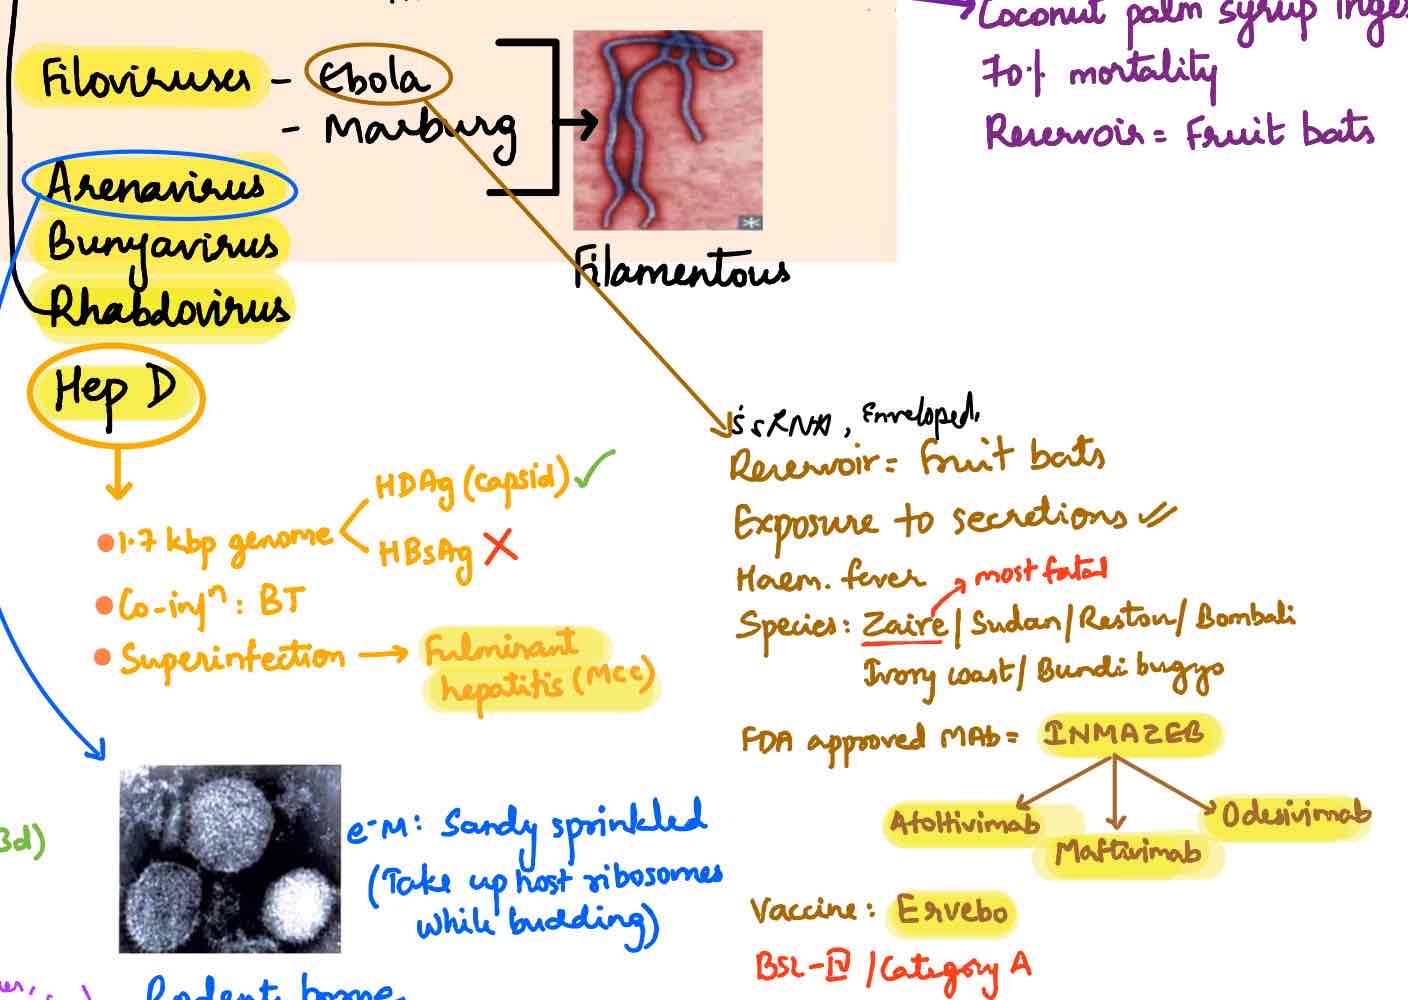 Coconut palm syrup
70% mortality
Reservoir = Fruit bats
Filoviruses - Ebola
- Marburg
Filamentous
Arenavirus
Bunyavirus
Rhabdovirus
Hep D
1.7 kbp genome
HDAg (capsid) ✓
HBsAg X
Co-infⁿ : BT
Superinfection → Fulminant
hepatitis (MCC)
e-M: Sandy sprinkled
(Take up host ribosomes
while budding)
Rodent borne
3d)
ssRNA, Enveloped.
Reservoir = Fruit bats
Exposure to secretions
Haem. fever
most fatal
Species: Zaire / Sudan / Reston / Bombali
Ivory coast / Bundi bugyo
FDA approved MAb = INMAZEB
Atoltivimab
Maftivimab
Odesivimab
Vaccine : Ervebo
BSL-IV / Category A